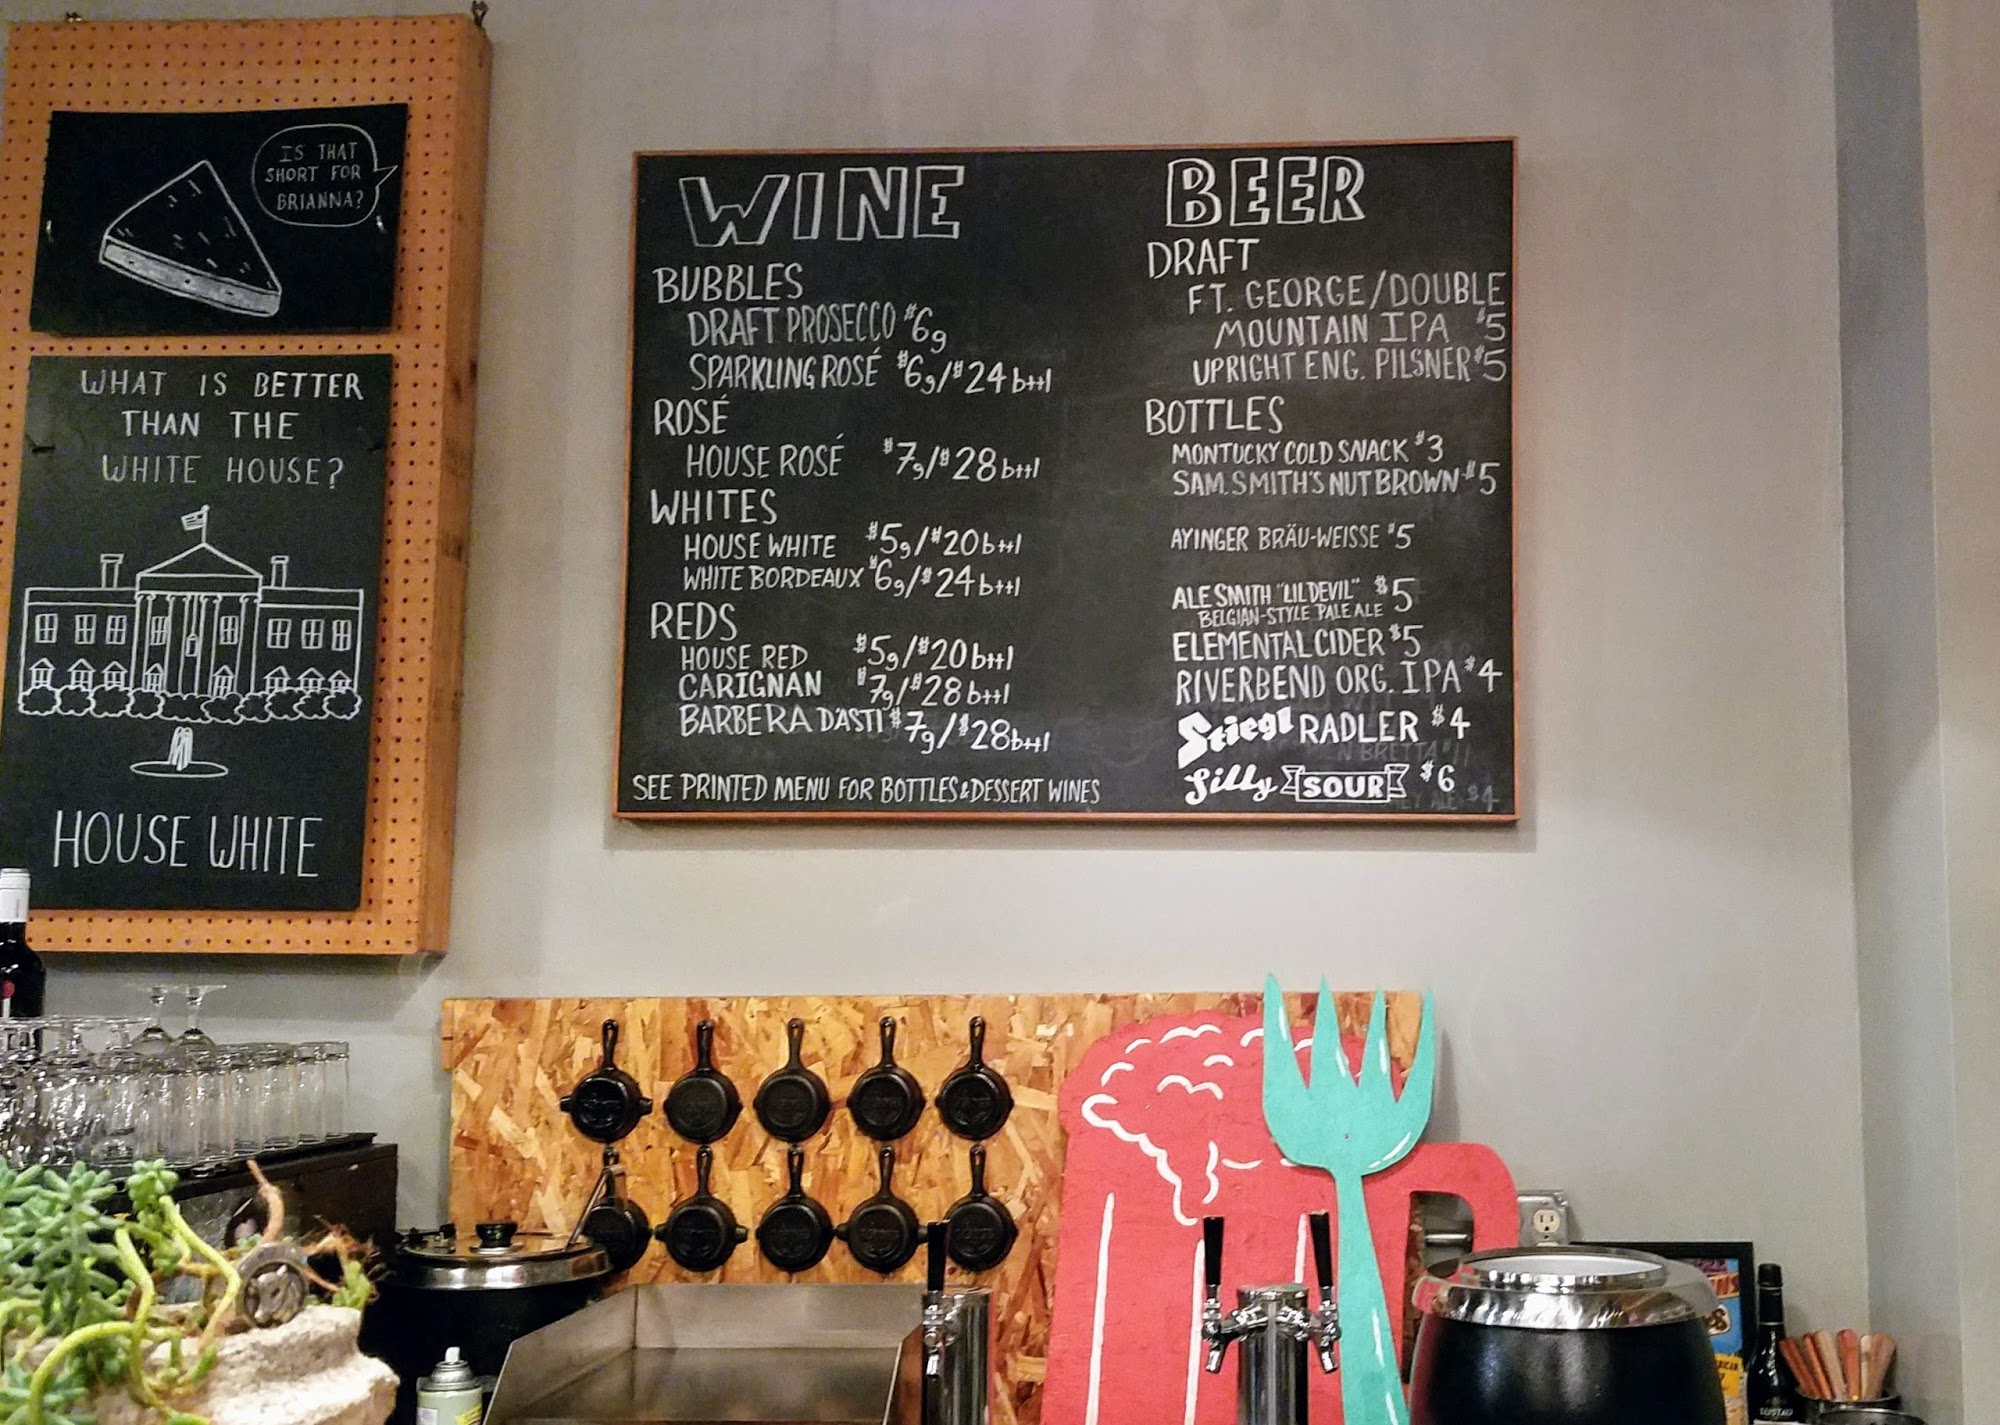 IS THAT
SHORT FOR
BRIANNA?
WHAT IS BETTER
THAN THE
WHITE HOUSE?
HOUSE WHITE
WINE
BUBBLES
DRAFT PROSECCO $6g
SPARKLING ROSÉ $6g/$24 bttl
ROSÉ
HOUSE ROSÉ $7g/$28 bttl
WHITES
HOUSE WHITE $5g/$20 bttl
WHITE BORDEAUX $6g/$24 bttl
REDS
HOUSE RED $5g/$20 bttl
CARIGNAN $7g/$28 bttl
BARBERA D'ASTI $7g/$28 bttl
SEE PRINTED MENU FOR BOTTLES & DESSERT WINES
BEER
DRAFT
FT. GEORGE/DOUBLE
MOUNTAIN IPA $5
UPRIGHT ENG. PILSNER $5
BOTTLES
MONTUCKY COLD SNACK $3
SAM. SMITH'S NUT BROWN $5
AYINGER BRÄU-WEISSE $5
ALE SMITH "LIL DEVIL" $5
BELGIAN-STYLE PALE ALE
ELEMENTAL CIDER $5
RIVERBEND ORG. IPA $4
Stiegl RADLER $4
Silly SOUR $6